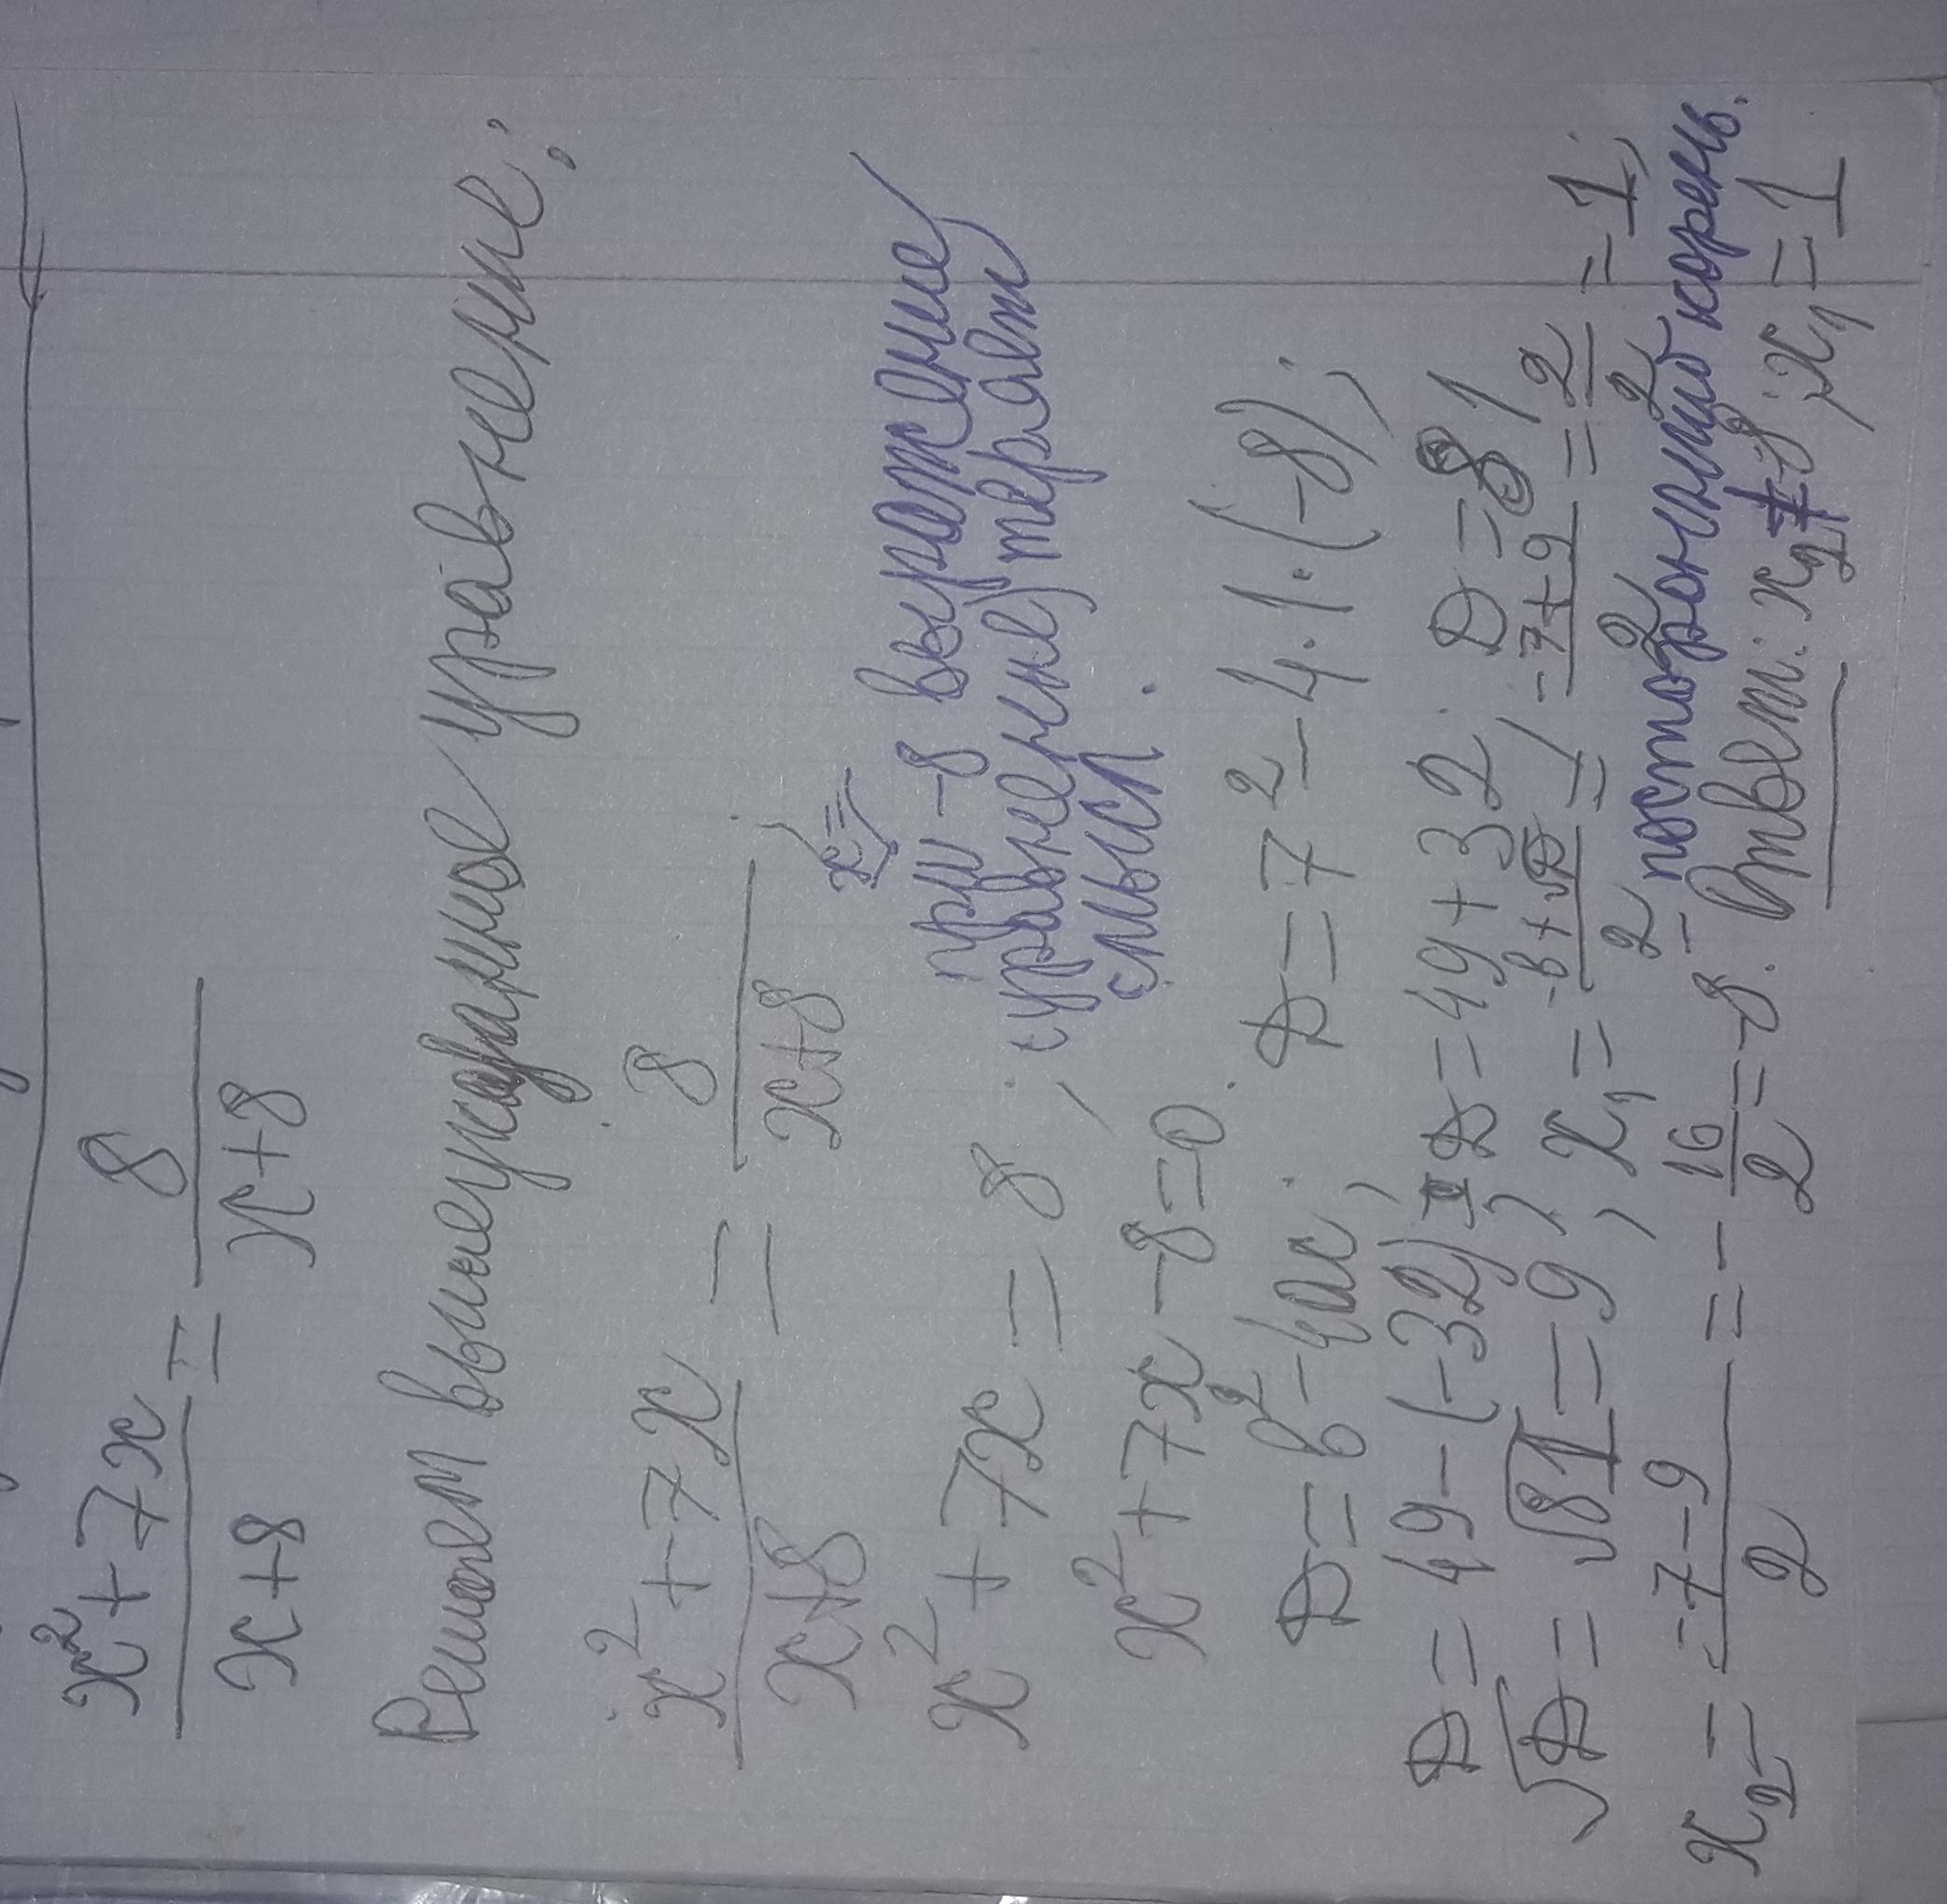 x²+7x/x+8 = 8/x+8
Решаем вышеуказанное уравнение:
x²+7x/x+8 = 8/x+8
x²+7x = 8;
при -8 выражение
(уравнение) теряет
смысл.
x²+7x-8=0.
D=b²-4ac; D=7²-4·1·(-8);
D=49-(-32); D=49+32; D=81
√D=√81=9; x₁=-b+√D/2=-7+9/2=2/2=1;
x₂=-7-9/2=-16/2=-8 - посторонний корень.
Ответ: x₂≠-8; x₁=1